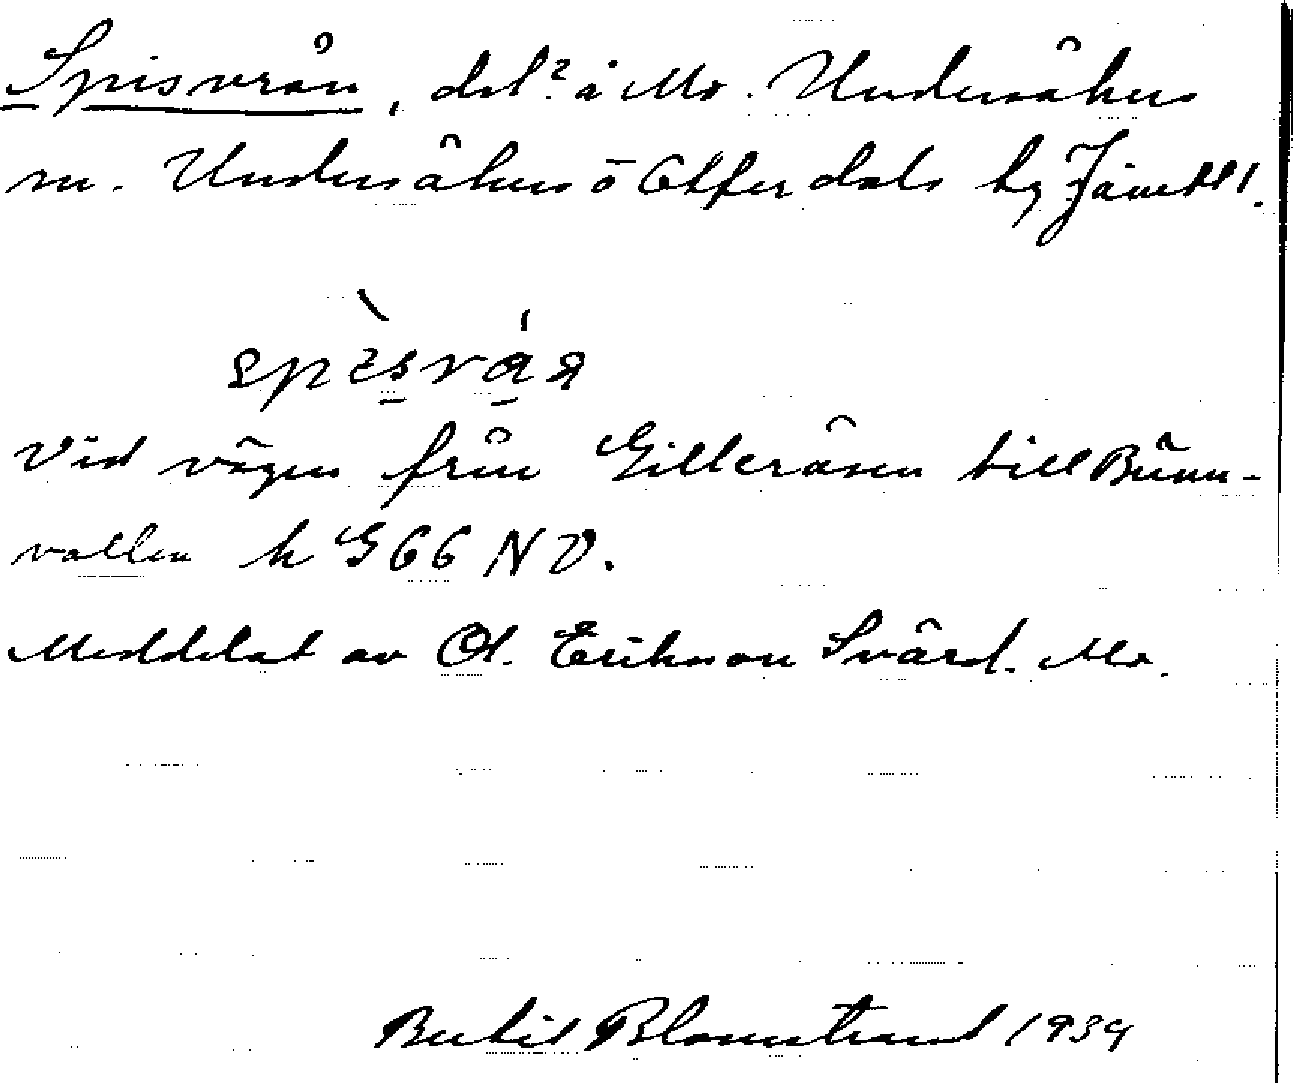 Spisvrån, del? å Mo. Undersåkers
sn. Undersåkers o Offerdals tg Jämtl l.
Vid vägen från Gilleråsen till Bånn-
vallen k G66 NV.
Meddelat av Ol. Erikson Svärd. Mo.
Bertil Blomstrand 1939